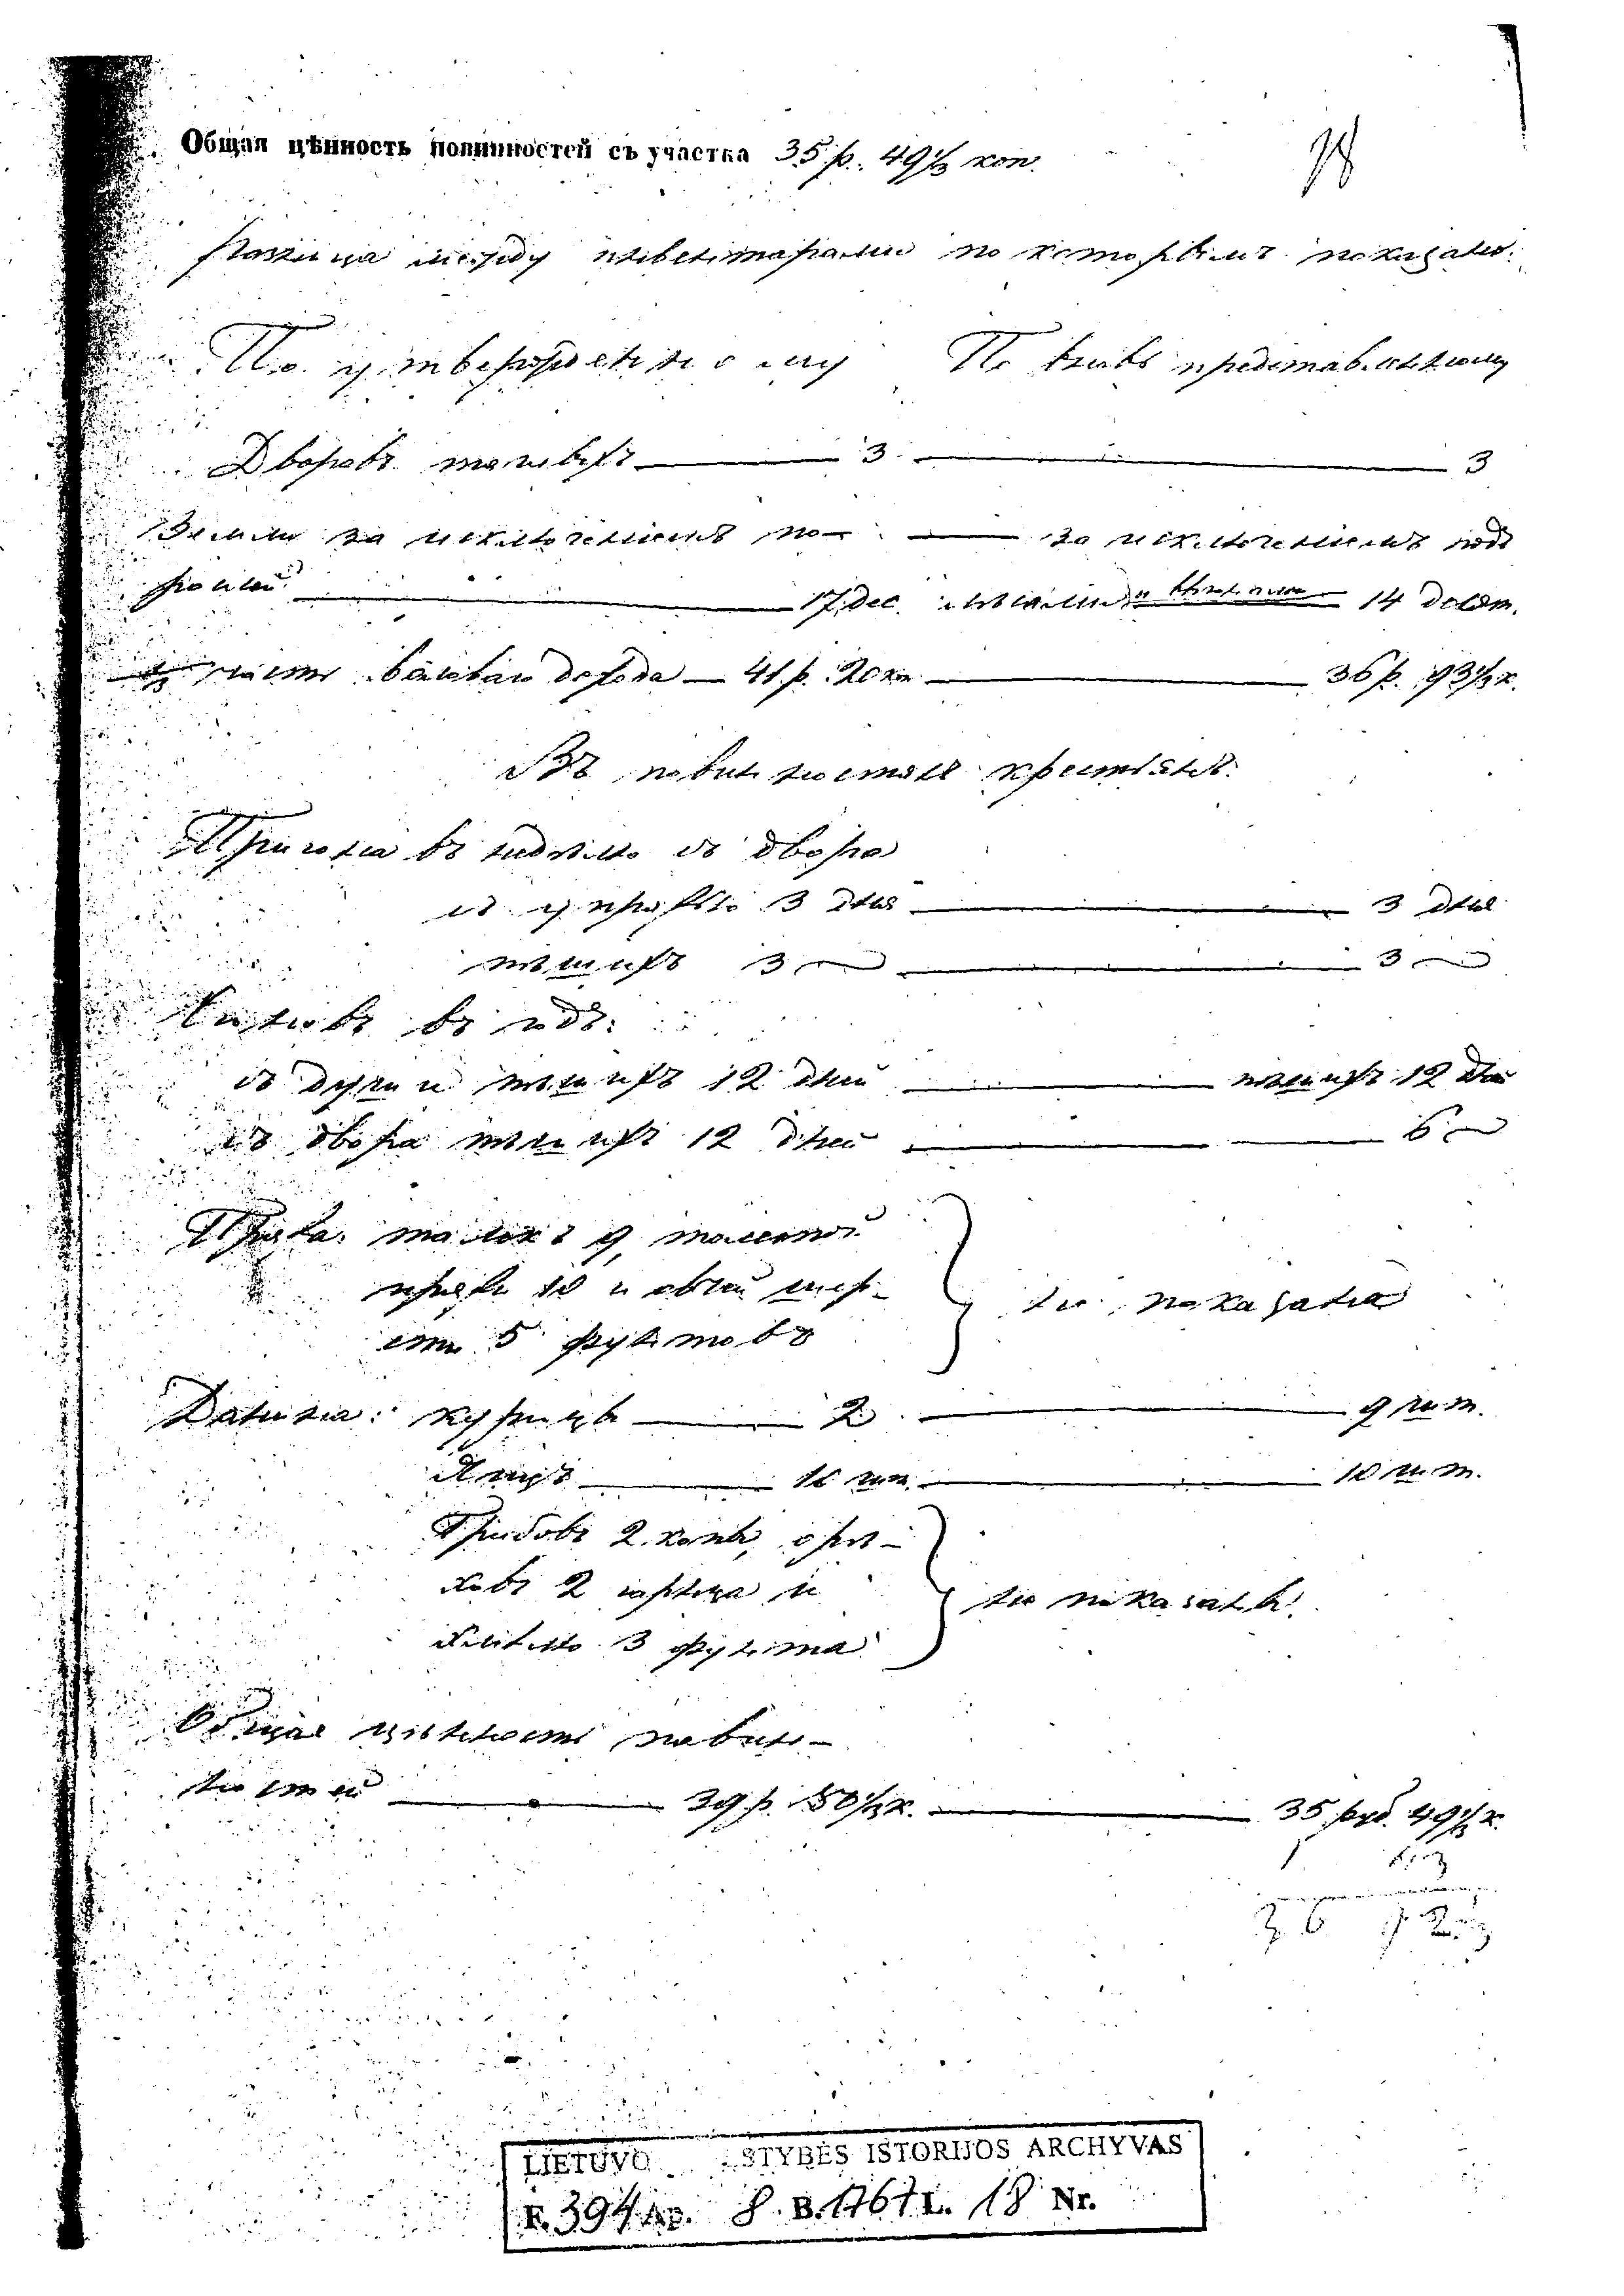 Общая цѣнность повинностей съ участка 35 р. 49⅓ коп.
18
Разница между инвентарами по которымъ показано:
По утвержденному По вновь представленному
Дворовъ тяглыхъ 3 3
Земли за исключеніемъ по- за исключеніемъ под
рослей 17 дес. 14 десят.
⅓ часть валоваго дохода — 41 р. 20 коп 36 р. 93⅓ к.
Въ повинностяхъ крестьянъ:
Пригона въ недѣлю съ двора
съ упряжью 3 дня 3 дня
пѣшихъ 3 3
въ годъ:
съ души пѣшихъ 12 дней пѣшихъ 12 дней
съ двора пѣшихъ 12 дней 6
Пряжа: талекъ 9, толстой
пряжи 10 и овчей шер-
сти 5 фунтовъ
не показана
Данина: курицъ 2 9 шт.
Яицъ 10 шт. 10 шт.
Грибовъ 2 копы, орѣ-
ховъ 2 гарнца и
хмѣлю 3 фунта
не показаны.
Общая цѣнность повин-
ностей 39 р. 50⅓ к. 35 руб. 49⅓ к.
LIETUVO STYBĖS ISTORIJOS ARCHYVAS
F. 394 Ap. 8. B. 1767 L. 18 Nr.